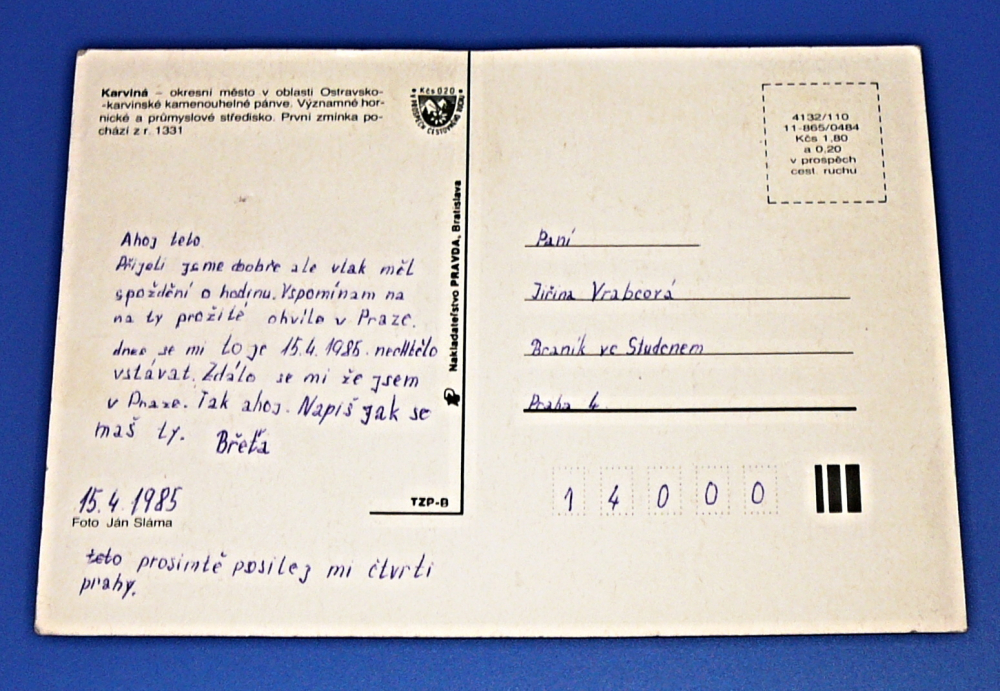 Karviná – okresní město v oblasti Ostravsko-
-karvinské kamenouhelné pánve. Významné hor-
nické a průmyslové středisko. První zmínka po-
chází z r. 1331
Kčs 0,20
V PROSPĚCH CESTOVNÍHO RUCHU
4132/110
11-865/0484
Kčs 1,80
a 0,20
v prospěch
cest. ruchu
Ahoj teto
Přijeli jsme dobře ale vlak měl
spoždění o hodinu. Vspomínam na
na ty prožité chvíle v Praze.
dnes se mi to je 15.4. 1985. nechtělo
vstávat. Zdálo se mi že jsem
v Praze. Tak ahoj. Napiš jak se
maš ty. Břeťa
15.4. 1985
Foto Ján Sláma
teto prosimtě posilej mi čtvrti
prahy.
Nakladateľstvo PRAVDA, Bratislava
TZP-B
Paní
Jiřina Vrabcová
Braník ve Studenem
Praha 4.
1 4 0 0 0